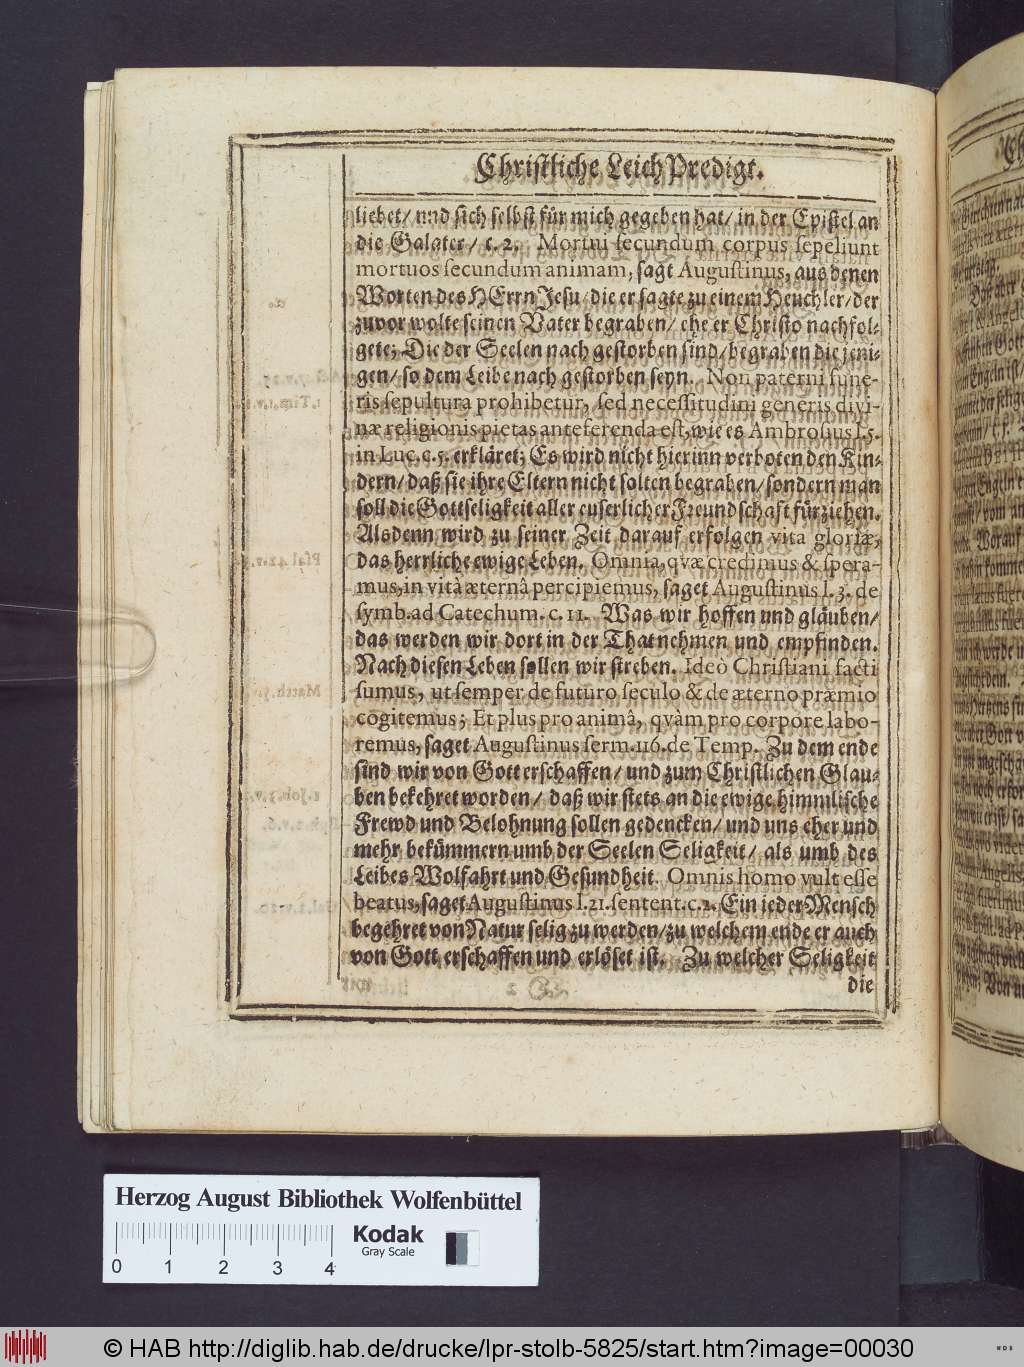 Christliche Leich Predigt.
liebet/ und sich selbst für mich gegeben hat/ in der Epistel an
die Galater/ c. 2. Mortui secundum corpus sepeliunt
mortuos secundum animam, sagt Augustinus, aus denen
Worten des HErrn Jesu/ die er sagte zu einem Heuchler/ der
zuvor wolte seinen Vater begraben/ ehe er Christo nachfol-
gete; Die der Seelen nach gestorben sind/ begraben die jeni-
gen/ so dem Leibe nach gestorben seyn. Non paterni fune-
ris sepultura prohibetur, sed necessitudini generis divi-
næ religionis pietas anteferenda est, wie es Ambrosius l. 5.
in Luc. c. 5. erkläret; Es wird nicht hierinn verboten den Kin-
dern/ daß sie ihre Eltern nicht solten begraben/ sondern man
soll die Gottseligkeit aller euserlicher Freundschaft fürziehen.
Alsdenn wird zu seiner Zeit darauf erfolgen vita gloriæ,
das herrliche ewige Leben. Omnia, qvæ credimus & spera-
mus, in vitâ æternâ percipiemus, saget Augustinus l. 3. de
symb. ad Catechum. c. 11. Was wir hoffen und gläuben/
das werden wir dort in der That nehmen und empfinden.
Nach diesen Leben sollen wir streben. Ideò Christiani facti
sumus, ut semper de futuro seculo & de æterno præmio
cogitemus; Et plus pro animâ, qvàm pro corpore labo-
remus, saget Augustinus serm. 116. de Temp. Zu dem ende
sind wir von Gott erschaffen/ und zum Christlichen Glau-
ben bekehret worden/ daß wir stets an die ewige himmlische
Frewd und Belohnung sollen gedencken/ und uns eher und
mehr bekümmern umb der Seelen Seligkeit/ als umb des
Leibes Wolfahrt und Gesundheit. Omnis homo vult esse
beatus, saget Augustinus l. 21. sentent. c. 2. Ein ieder Mensch
begehret von Natur selig zu werden/ zu welchem ende er auch
von Gott erschaffen und erlöset ist. Zu welcher Seligkeit
die
Herzog August Bibliothek Wolfenbüttel
Kodak
Gray Scale
0 1 2 3 4
© HAB http://diglib.hab.de/drucke/lpr-stolb-5825/start.htm?image=00030